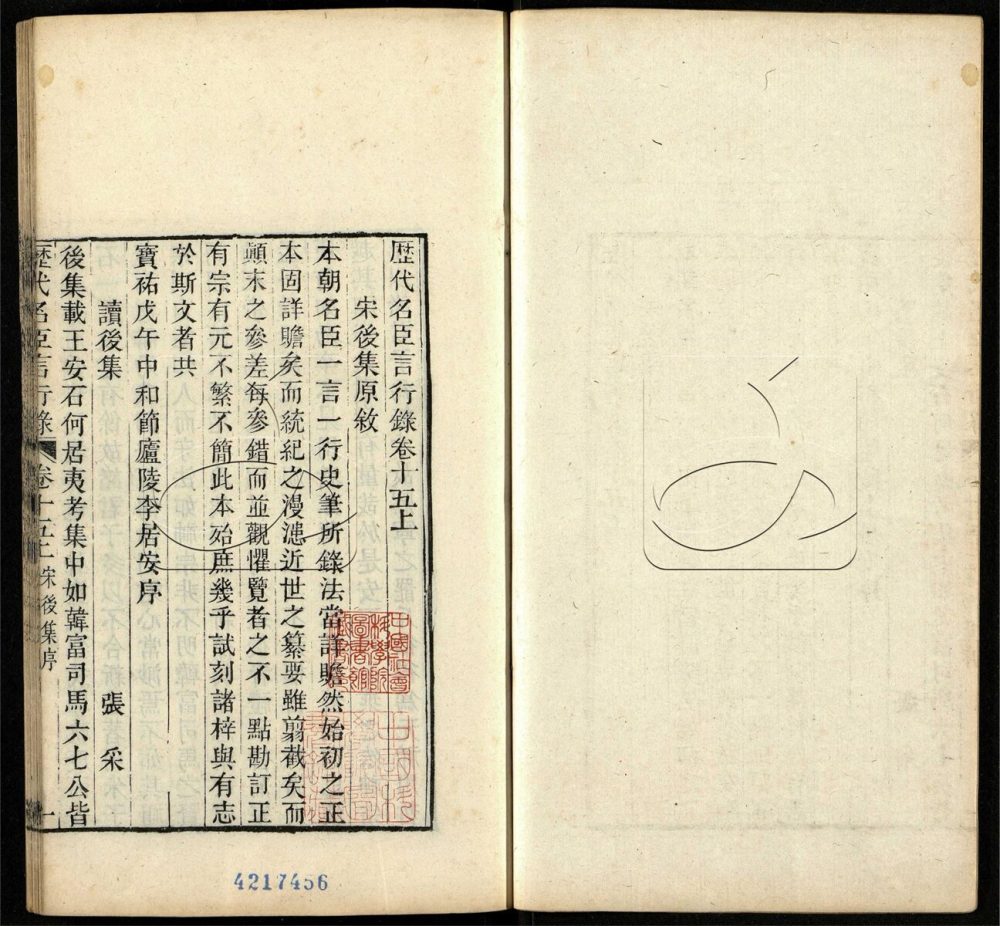 歷代名臣言行錄卷十五上
宋後集原敘
本朝名臣一言一行史筆所錄法當詳贍然始初之正
本固詳贍矣而統紀之漫漶近世之纂要雖翦截矣而
顚末之參差每參錯而並觀懼覽者之不一點勘訂正
有宗有元不繁不簡此本殆庶幾乎試刻諸梓與有志
於斯文者共
寶祐戊午中和節廬陵李居安序
讀後集 張采
後集載王安石何居夷考集中如韓富司馬六七公皆
歷代名臣言行錄 卷十五上 宋後集序 一
中國社會科學院圖書館藏書
4217456